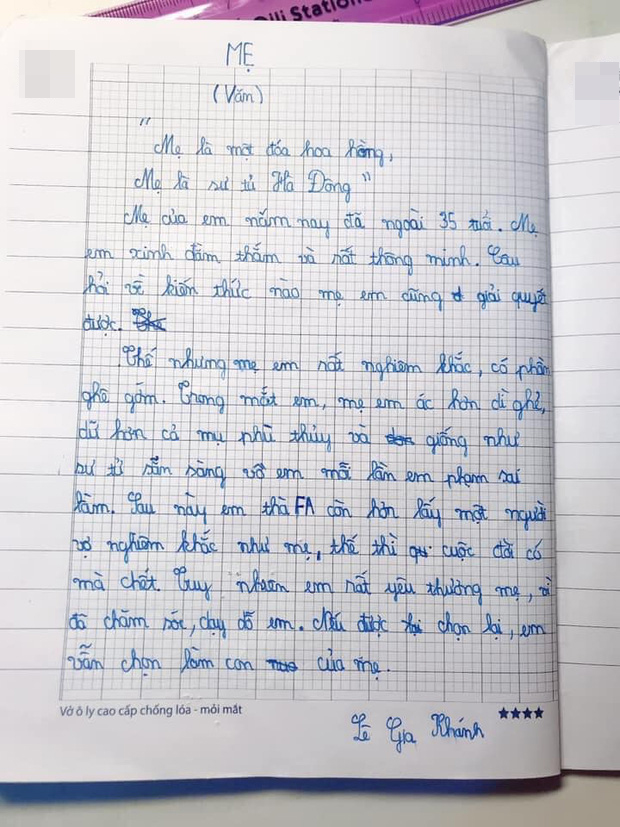 Oili Station
MẸ
(Văn)
"
Mẹ là một đóa hoa hồng,
Mẹ là sư tử Hà Đông"
Mẹ của em năm nay đã ngoài 35 tuổi. Mẹ
em xinh đằm thắm và rất thông minh. Câu
hỏi về kiến thức nào mẹ em cũng giải quyết
được.
Thế nhưng mẹ em rất nghiêm khắc, có phần
ghê gớm. Trong mắt em, mẹ em ác hơn dì ghẻ,
dữ hơn cả mụ phù thủy và giống như
sư tử sẵn sàng vồ em mỗi lần em phạm sai
lầm. Sau này em thà FA còn hơn lấy một người
vợ nghiêm khắc như mẹ, thế thì cuộc đời có
mà chết. Tuy nhiên em rất yêu thương mẹ, vì
đã chăm sóc, dạy dỗ em. Nếu được chọn lại, em
vẫn chọn làm con của mẹ.
Vở ô ly cao cấp chống lóa - mỏi mắt
Lê Gia Khánh